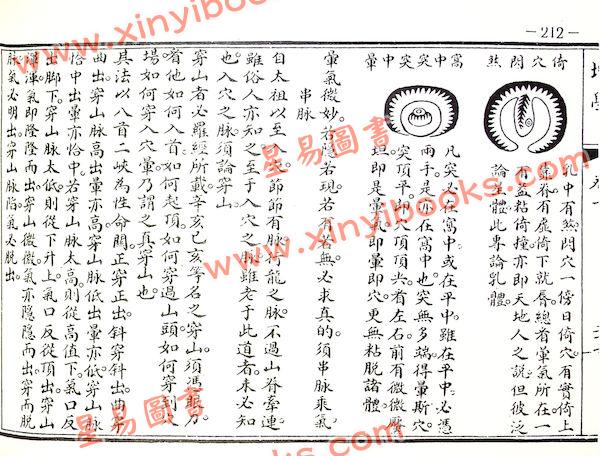 －212－
倚穴閃煞
乳中有煞閃穴一傍曰倚穴有實倚上
弦脊有虛倚下就唇總首暈氣所在一
有盖粘倚撞亦即天地人之說但彼泛
論主體此專論乳體
窩中突突中暈
凡突必在窩中或在平中雖在平中必憑
兩手是亦在窩中也突無多端得暈斯穴
突頂平即穴頂頂尖看左石前有微微壓
坦即是暈氣即暈即穴更無粘脫諸體
暈氣微妙若隱若現若有若無必求真的須串脉乘氣
串脉
自太祖以至入 節節有脉行龍之脉不過山脊牽連
雖俗人亦知之至于入穴之脉雖老于此道者未必知
也入穴之脉須論穿山
穿山者必羅經所載辛亥己亥等名之穿山須馮眼力
看他如何入首如何起頂如何穿過山頭如何穿到
場如何穿入穴暈乃謂之真穿山也
其法以入首二峽為性命關正穿正出斜穿斜出曲穿
曲出穿山脉高出暈亦高穿山脉低出暈亦低穿山脉
恰中出暈亦恰中若穿山脉太高則從高值下氣口反
出脚下穿山脉太低則從下升上氣口反從頂出穿山
渾渾氣即隆隆而出穿山微微氣亦隱隱而出穿而脫
脉氣必明出穿山脉陷氣必脫出
www.xinyibooks.com
星易圖書
www.xinyibooks.com
星易圖書
www.xinyibooks.com
星易圖書